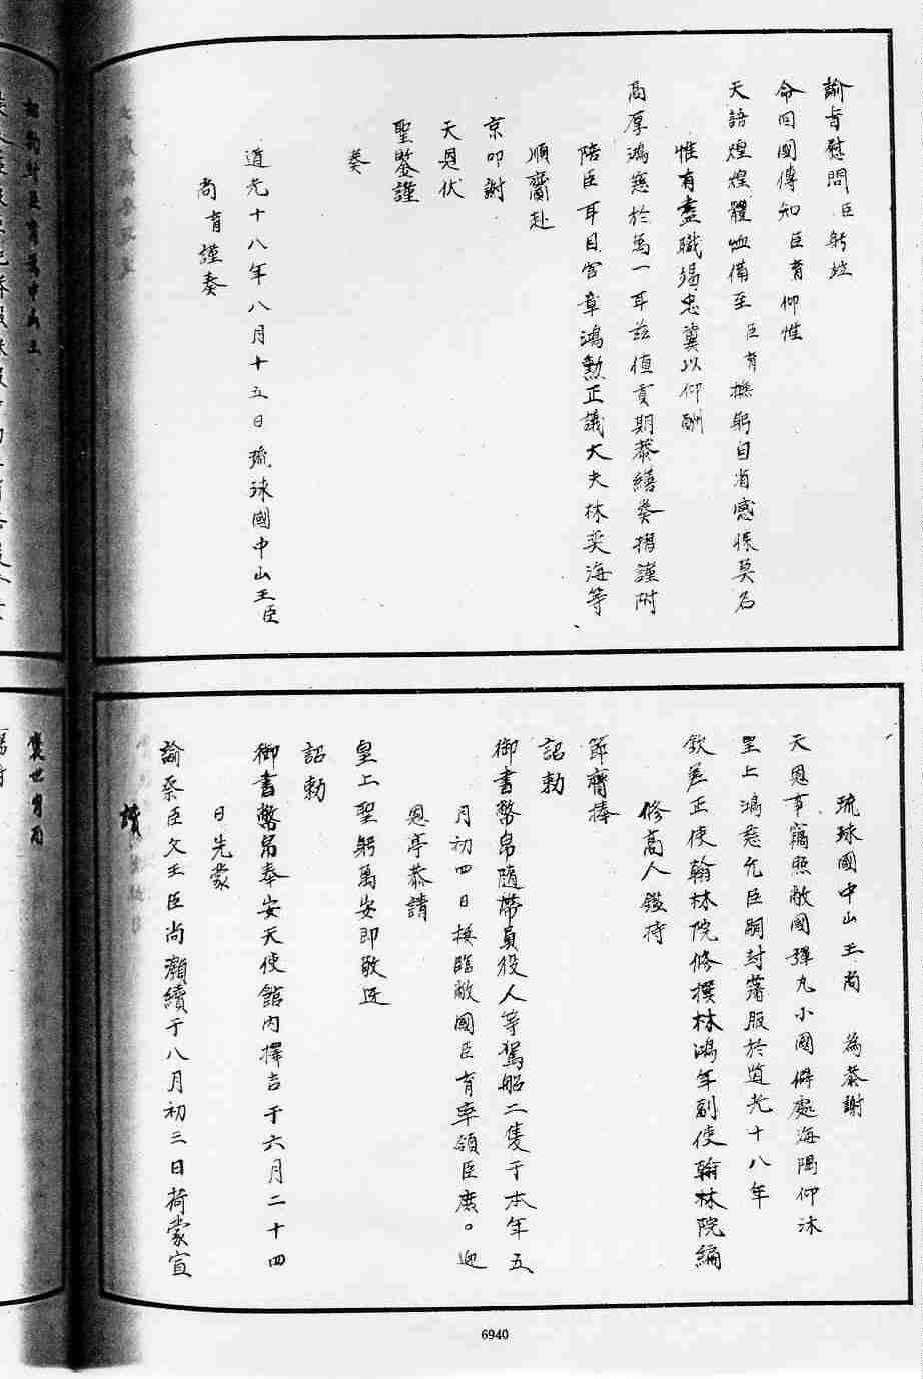 諭旨慰問臣躬竝
命回國傳知臣育仰惟
天語煌煌體恤備至臣育撫躬自省感悚莫名
惟有盡職竭忠冀以仰酬
高厚鴻慈於萬一耳茲值貢期恭繕奏摺謹附
陪臣耳目官章鴻勲正議大夫林奕海等
順齎赴
京叩謝
天恩伏
聖鑒謹
奏
道光十八年八月十五日琉球國中山王臣
尚育謹奏
琉球國中山王尚 為恭謝
天恩事竊照敝國彈丸小國僻處海隅仰沐
皇上鴻慈允臣嗣封藩服於道光十八年
欽差正使翰林院修撰林鴻年副使翰林院編
修高人鑑持
節齎捧
詔勅
御書幣帛隨帶員役人等駕船二隻于本年五
月初四日接臨敝國臣育率領臣庶。迎
恩亭恭請
皇上聖躬萬安即敬迓
詔勅
御書幣帛奉安天使館內擇吉于六月二十四
日先蒙
諭祭臣父王臣尚灝續于八月初三日荷蒙宣
讀
6940